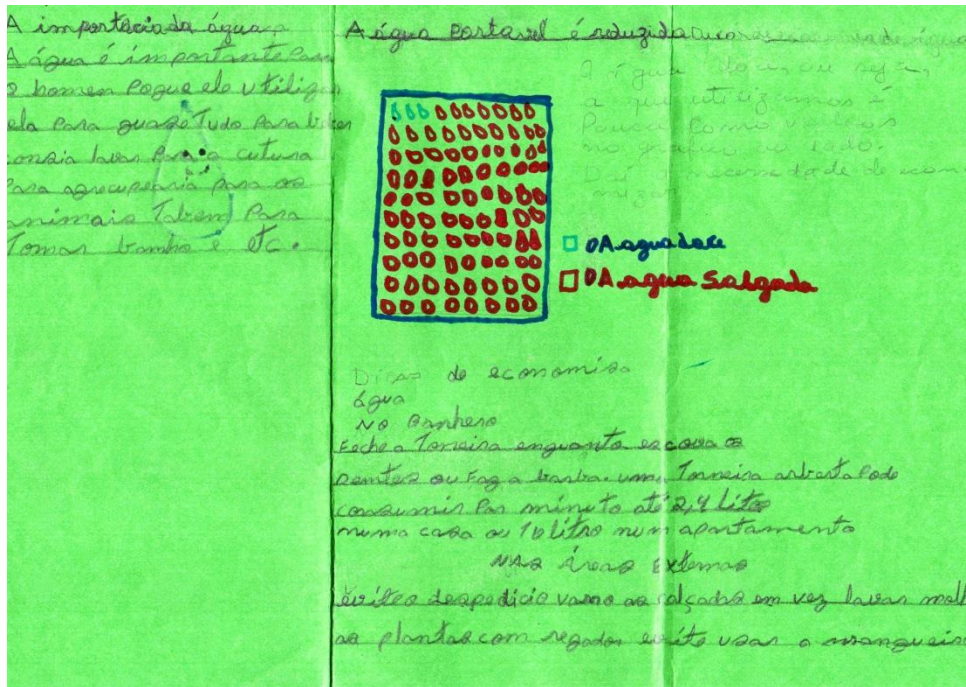 A importâcia da água
A água é importante Para
o homem Poque ele utiliza
ela Para quaze Tudo Para beber
conzia lavar Para a cutura
Para agrocupearia para os
animais Tabem Para
Tomar banho e etc.
A água Portavel é reduzida
a água doce, ou seja,
a que utilizamos é
Pouca como vemos
no gráfico ao lado.
Daí a necessidade de econo
mizar
A agua doce
A agua Salgada
Dicas de economiza
água
No Banhero
Feche a Torneira enquanto escova os
Dentes ou Faz a barba. uma Torneira arberta Pode
consumir Por minuto até 2,4 Litro
numa casa ou 16 litro num apartamento
NAS Áreas Externas
evites despedicio varro as calçadas em vez lavar molh
as plantas com regador evite usar a mangueira